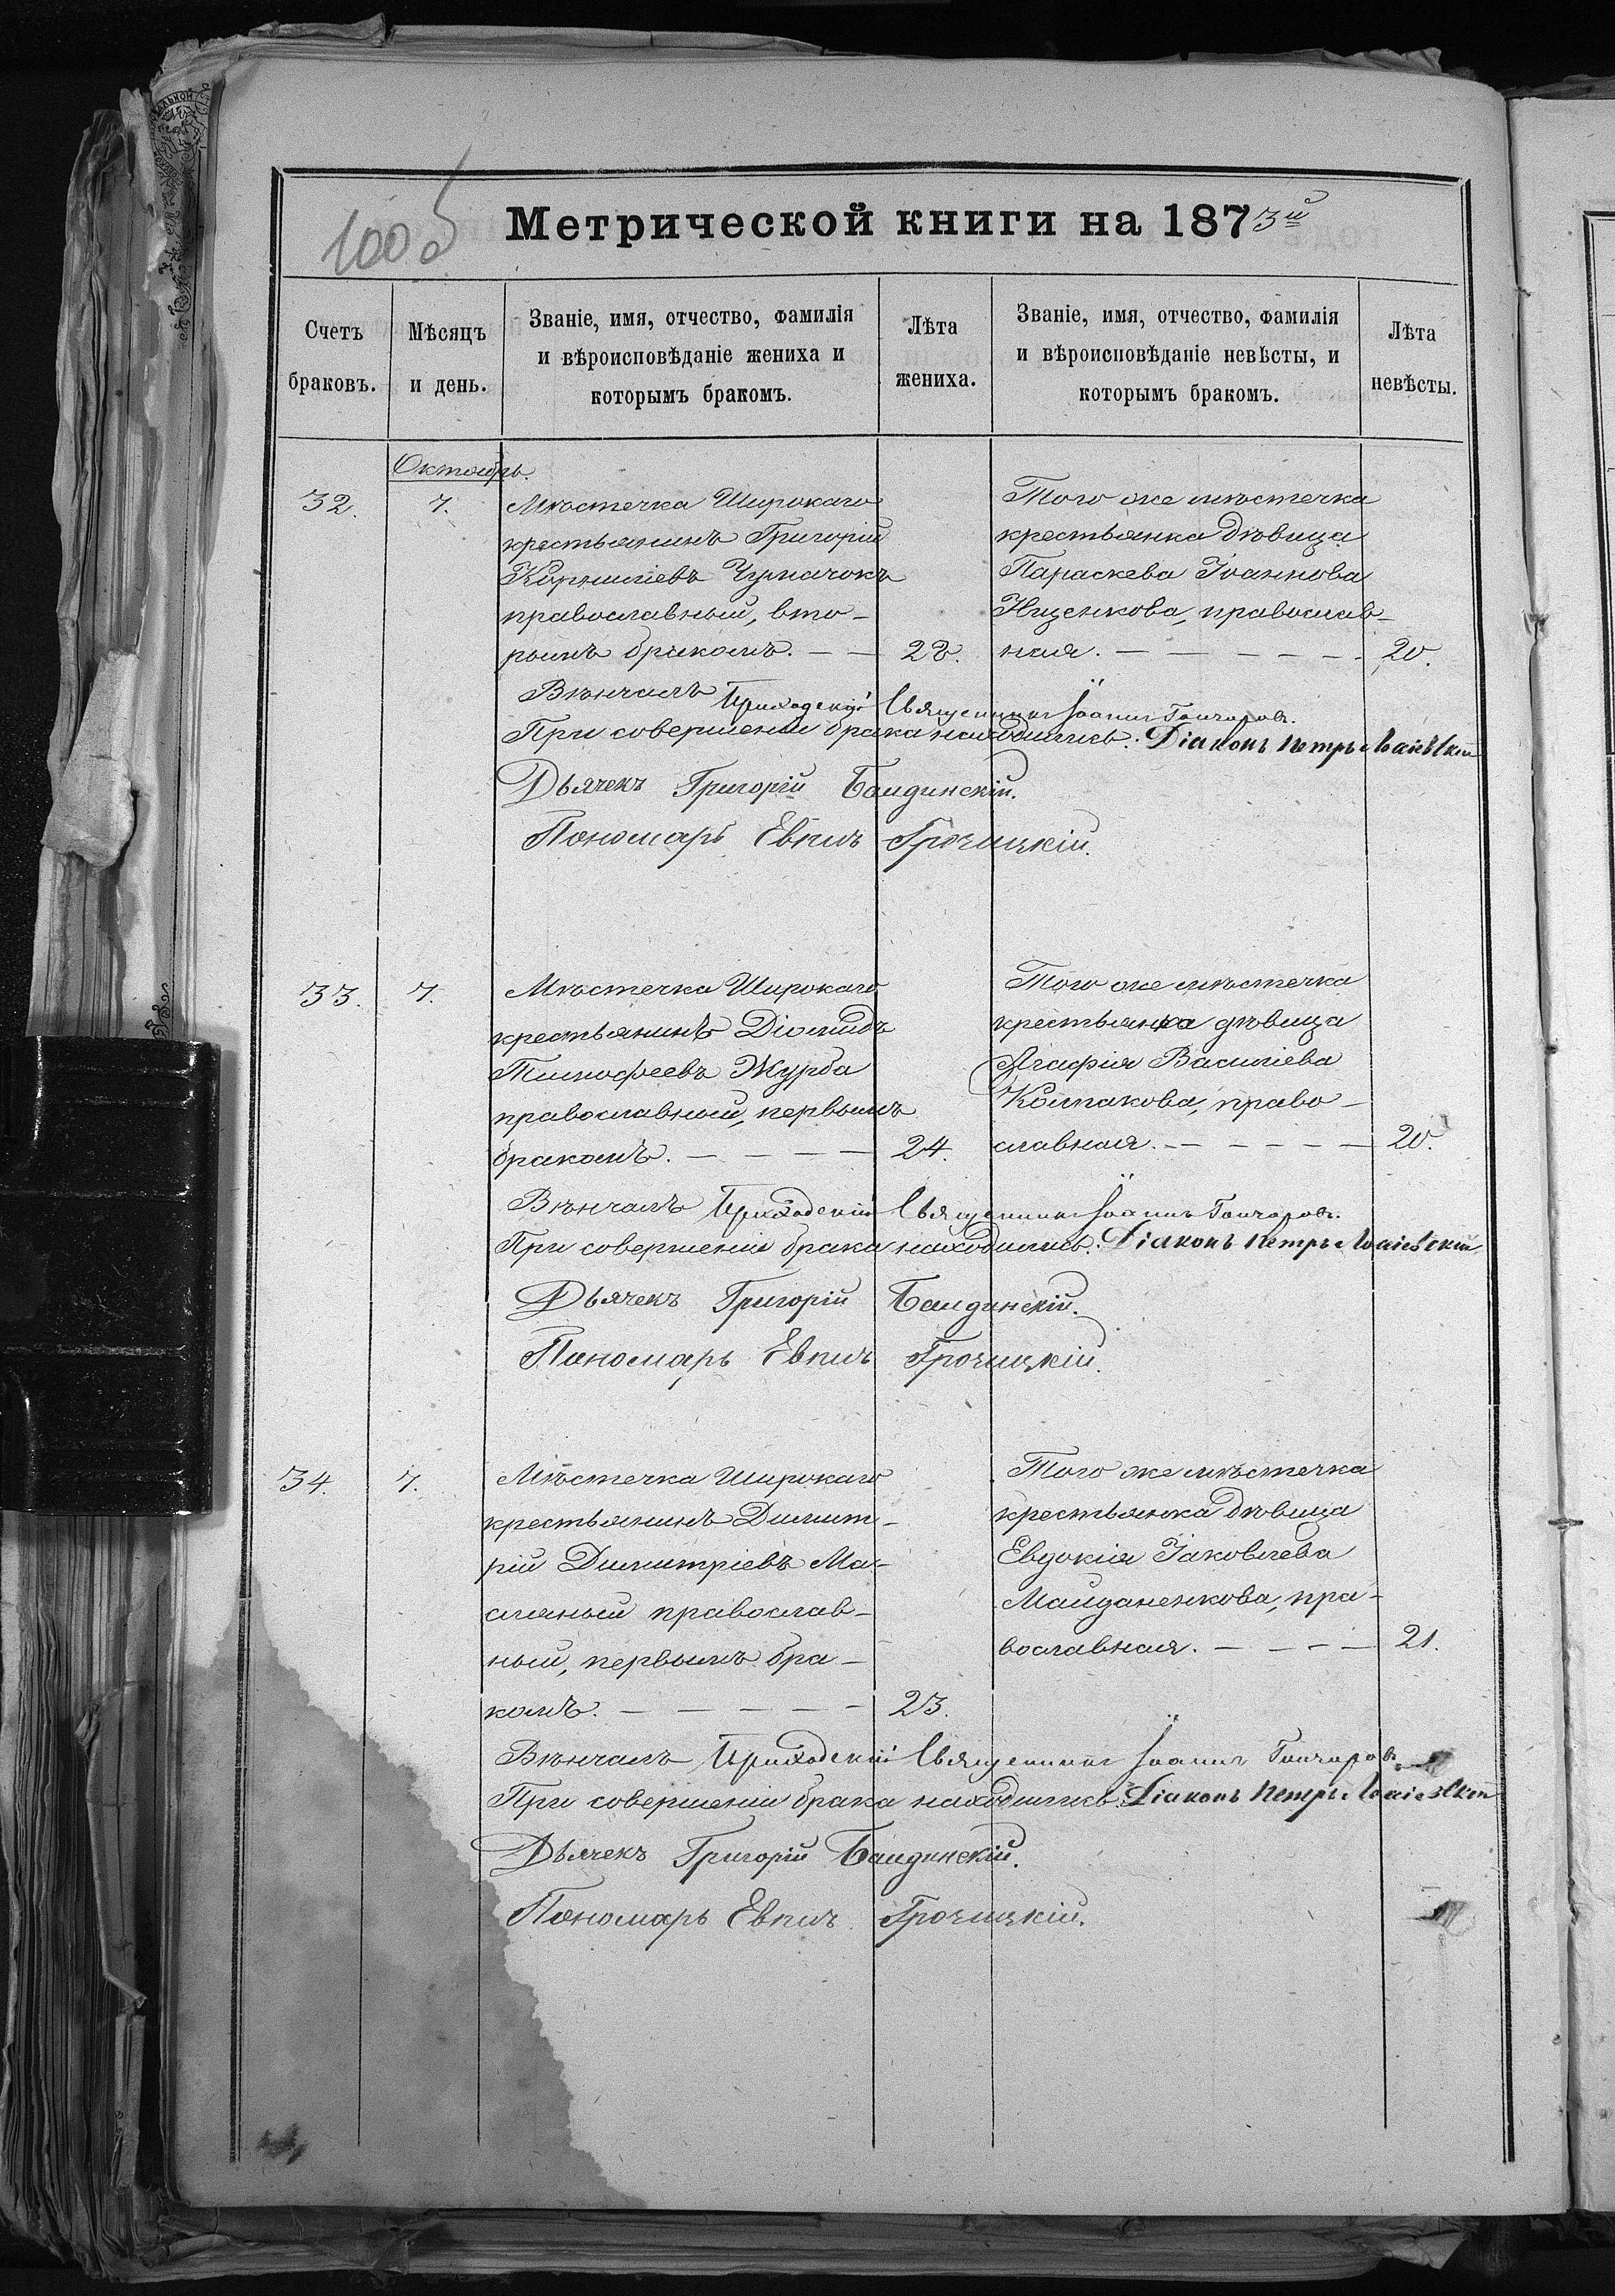 100 об
Метрической книги на 1873й
Счетъ браковъ.
Мѣсяцъ и день.
Званіе, имя, отчество, фамилія и вѣроисповѣданіе жениха и которымъ бракомъ.
Лѣта жениха.
Званіе, имя, отчество, фамилія и вѣроисповѣданіе невѣсты, и которымъ бракомъ.
Лѣта невѣсты.
Октябрь.
32. 7.
Мѣстечка Широкаго
крестьянинъ Григорій
Корниліевъ Чумачокъ
православный, вто-
рымъ бракомъ. — — 28.
Того же мѣстечка
крестьянка дѣвица
Параскева Іоаннова
Ищенкова, православ-
ная. — — — — — — 20.
Вѣнчалъ Приходскій Священникъ Іоаннъ Гончаровъ.
При совершеніи брака находились: Діаконъ Петръ Маіевскій
Дьячекъ Григорій Бандинскій.
Пономарь Евпил Грочицкій.
33. 7.
Мѣстечка Широкаго
крестьянинъ Діомидъ
Тимофеевъ Журба
православный, первымъ
бракомъ. — — — — 24.
Того же мѣстечка
крестьянка дѣвица
Агафія Василіева
Колпакова, право-
славная. — — — — — 20.
Вѣнчалъ Приходскій Священникъ Іоаннъ Гончаровъ.
При совершеніи брака находились: Діаконъ Петръ Маіевскій
Дьячекъ Григорій Бандинскій.
Пономарь Евпил Грочицкій.
34. 7.
Мѣстечка Широкаго
крестьянинъ Димит-
рій Димитріевъ Ма-
сляный православ-
ный, первымъ бра-
комъ. — — — — — 23.
Того же мѣстечка
крестьянка дѣвица
Евдокія Іаковлева
Майданенкова, пра-
вославная. — — — — 21.
Вѣнчалъ Приходскій Священникъ Іоаннъ Гончаровъ
При совершеніи брака находились: Діаконъ Петръ Маіевскій
Дьячекъ Григорій Бандинскій.
Пономарь Евпил Грочицкій.